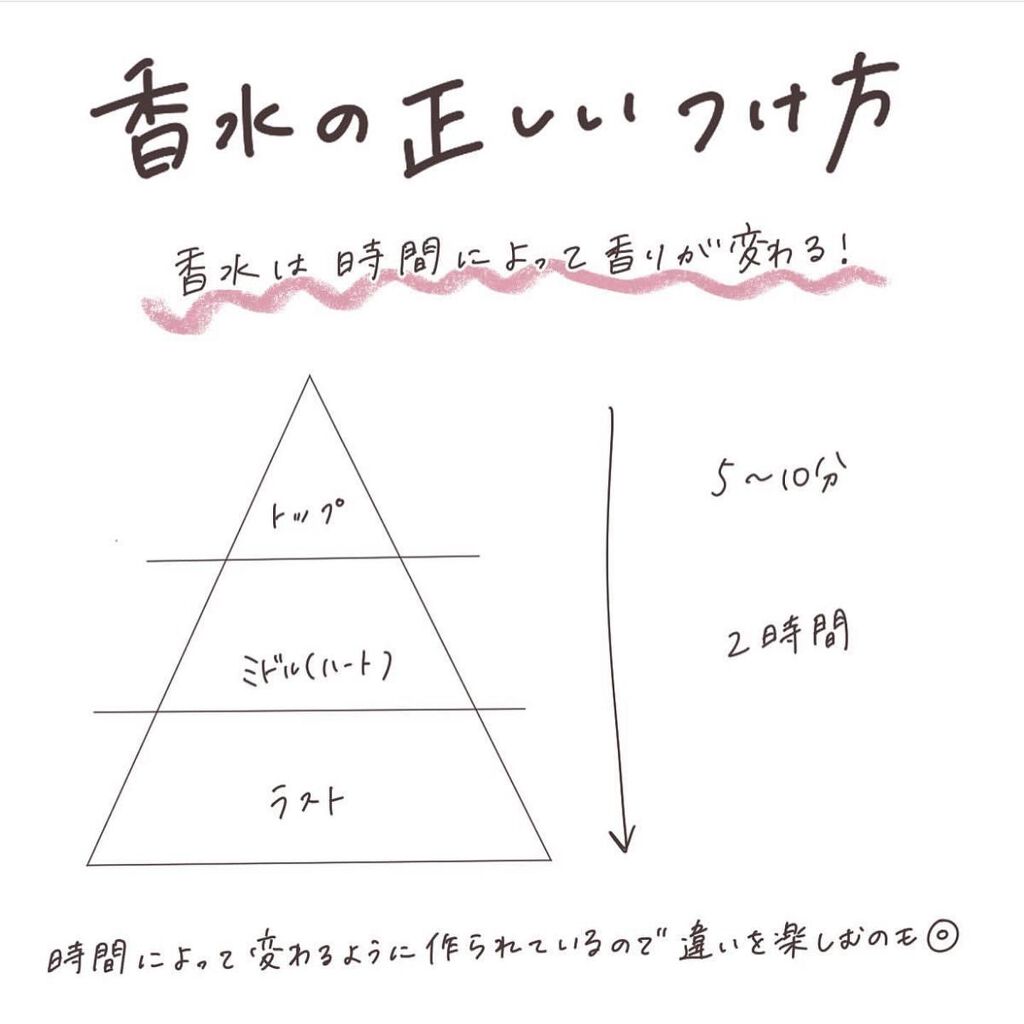 香水の正しいつけ方
香水は時間によって香りが変わる!
トップ
5〜10分
ミドル(ハート)
2時間
ラスト
時間によって変わるように作られているので違いを楽しむのも◎